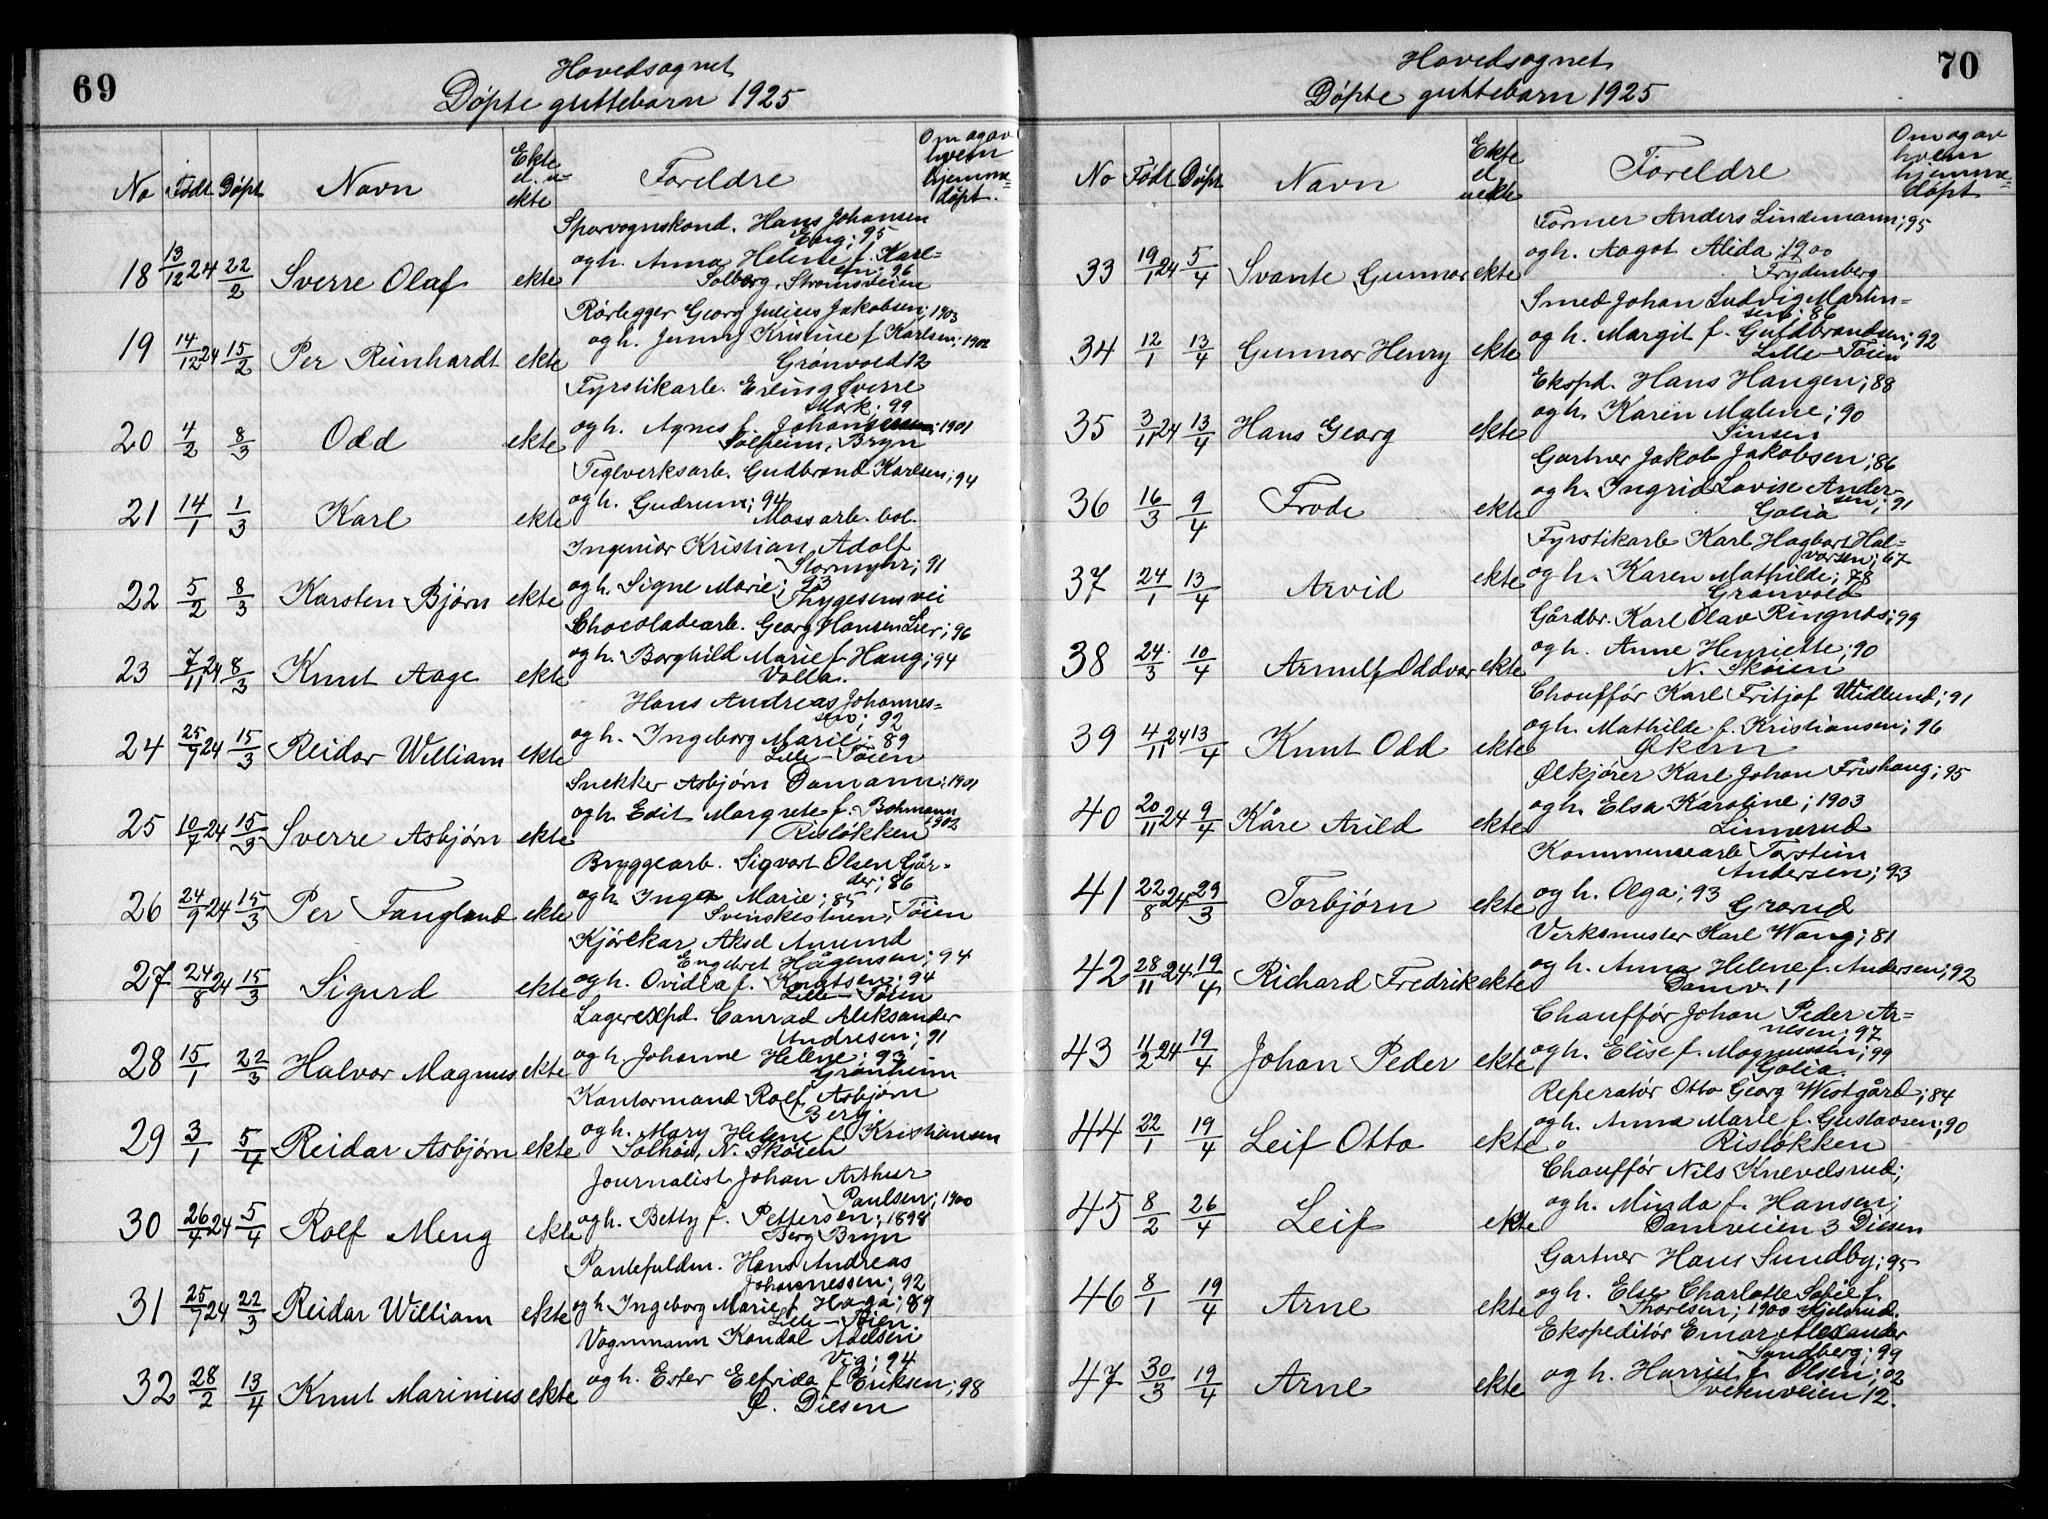 69
Hovedsognet
Døpte guttebarn 1925
No Født Døpt Navn Ekte el. uekte Foreldre Om og av hvem hjemmedøpt.
Sporvognskond. Hans Johansen
Eng; 95
18 13/12 24 22/2 Sverre Olaf ekte og h. Anna Helene f. Karl=
sen; 96
Solberg, Strømsveien
Rørlegger Georg Julius Jakobsen; 1903
19 14/12 24 15/2 Per Reinhardt ekte og h. Jenny Kristine f Karlsen; 1902
Grønvold 12
Fyrstikarb. Erling Sverre
Mork; 99
20 4/2 8/3 Odd ekte og h. Agnes f. Johansen; 1901
Solheim, Bryn
Teglverksarb. Gudbrand Karlsen; 94
21 14/1 1/3 Karl ekte og h. Gudrun; 94
Moss arb. bol.
Ingeniør Kristian Adolf
Stormyhr; 91
22 5/2 8/3 Karsten Bjørn ekte og h. Signe Marie; 93
Thygesens vei
Chocoladearb. Georg Hansen Lier; 96
23 7/11 24 8/3 Knut Aage ekte og h. Borghild Marie f. Haug; 94
Volla.
Hans Andreas Johannes=
sen; 92
24 25/7 24 15/3 Reidar William ekte og h. Ingeborg Marie; 89
Lille-Tøien
Snekker Asbjørn Damann; 1901
25 10/7 24 15/3 Sverre Asbjørn ekte og h. Edit Margrete f. Bohmann
1902
Risløkken
Bryggearb. Sigvart Olsen Går-
der; 86
26 24/9 24 15/3 Per Fangland ekte og h. Inga Marie; 85
Svenskestuen, Tøien
Kjørekar Aksel Amund
Engebret Hågensen; 94
27 24/8 24 15/3 Sigurd ekte og h. Ovidia f. Knutsen; 94
Lille-Tøien
Lagerexpd. Conrad Aleksander
Andresen; 91
28 15/1 22/3 Halvor Magnus ekte og h. Johanne Helene; 93
Grønheim
Kontormand Rolf Asbjørn
Berg.
29 3/1 5/4 Reidar Asbjørn ekte og h. Mary Helene f. Kristiansen
Solhøi, N. Skøien
Journalist Johan Arthur
Paulsen; 1900
30 26/4 24 5/4 Rolf Meng ekte og h. Betty f. Pettersen; 1898
Berg Bryn
Pantefuldm. Hans Andreas
Johannessen; 92
31 25/7 24 22/3 Reidar William ekte og h. Ingeborg Marie f. Haga; 89
Lille-Tøien.
Vognmann Kondal Adelsen
Vig; 94
32 28/2 13/4 Knut Marinius ekte og h. Ester Elfrida f Eriksen; 98
Ø. Disen
70
Hovedsognet
Døpte guttebarn 1925
No Født Døpt Navn Ekte el uekte Foreldre Om og av hvem hjemme=døpt
Former Anders Lindemann; 95
33 19/1 24 5/4 Svante Gunnar ekte og h. Aagot Alida; 1900
Frydenberg
Smed Johan Ludvig Martin=
sen; 86
34 12/1 13/4 Gunnar Henry ekte og h. Margit f. Guldbrandsen; 92
Lille-Tøien
Ekspd. Hans Haugen; 88
35 3/11 24 13/4 Hans Georg ekte og h. Karen Malene; 90
Sinsen
Gartner Jakob Jakobsen; 86
36 16/3 9/4 Frode ekte og h. Ingrid Lovise Ander-
sen; 91
Golia
Fyrstikarb Karl Hagbart Hal=
vorsen; 67
37 24/1 13/4 Arvid ekte og h. Karen Mathilde; 78
Grønvold
Gårdbr. Karl Olav Ringnes; 99
38 24/3 10/4 Arnulf Oddvar ekte og h. Anne Henriette; 90
N. Skøien
Chouffør Karl Fritjof Widlund; 91
39 4/11 24 13/4 Knut Odd ekte og h. Mathilde f. Kristiansen; 96
Økern
Ølkjører Karl Johan Frishaug; 95
40 20/11 24 9/4 Kåre Arild ekte og h. Elsa Karoline; 1903
Linnerud
Kommunearb Torstein
Andersen; 93
41 22/8 24 29/3 Torbjørn ekte og h. Olga; 93
Grorud
Verksmester Karl Wang; 81
42 28/11 24 19/4 Richard Fredrik ekte og h. Anna Helene f. Andersen; 92
Damv. 1
Chauffør Johan Peder Ar=
nesen; 97
43 11/2 24 19/4 Johan Peder ekte og h. Elise f. Magnussen; 99
Golia.
Reperatør Otto Georg Westgård; 84
44 22/1 19/4 Leif Otto ekte og h. Anna Marie f. Gustavsen; 90
Risløkken
Chauffør Nils Knevelsrud;
45 8/2 26/4 Leif ekte og h. Minda f. Hansen;
Damveien 3 Disen
Gartner Hans Sundby; 95
46 8/1 19/4 Arne ekte og h. Else Charlotte Sofie f.
Thoresen; 1900
Ekspeditør Einar Alexander
Sandberg; 99
47 30/3 19/4 Arne ekte og h. Harriet f. Olsen; 02
12.